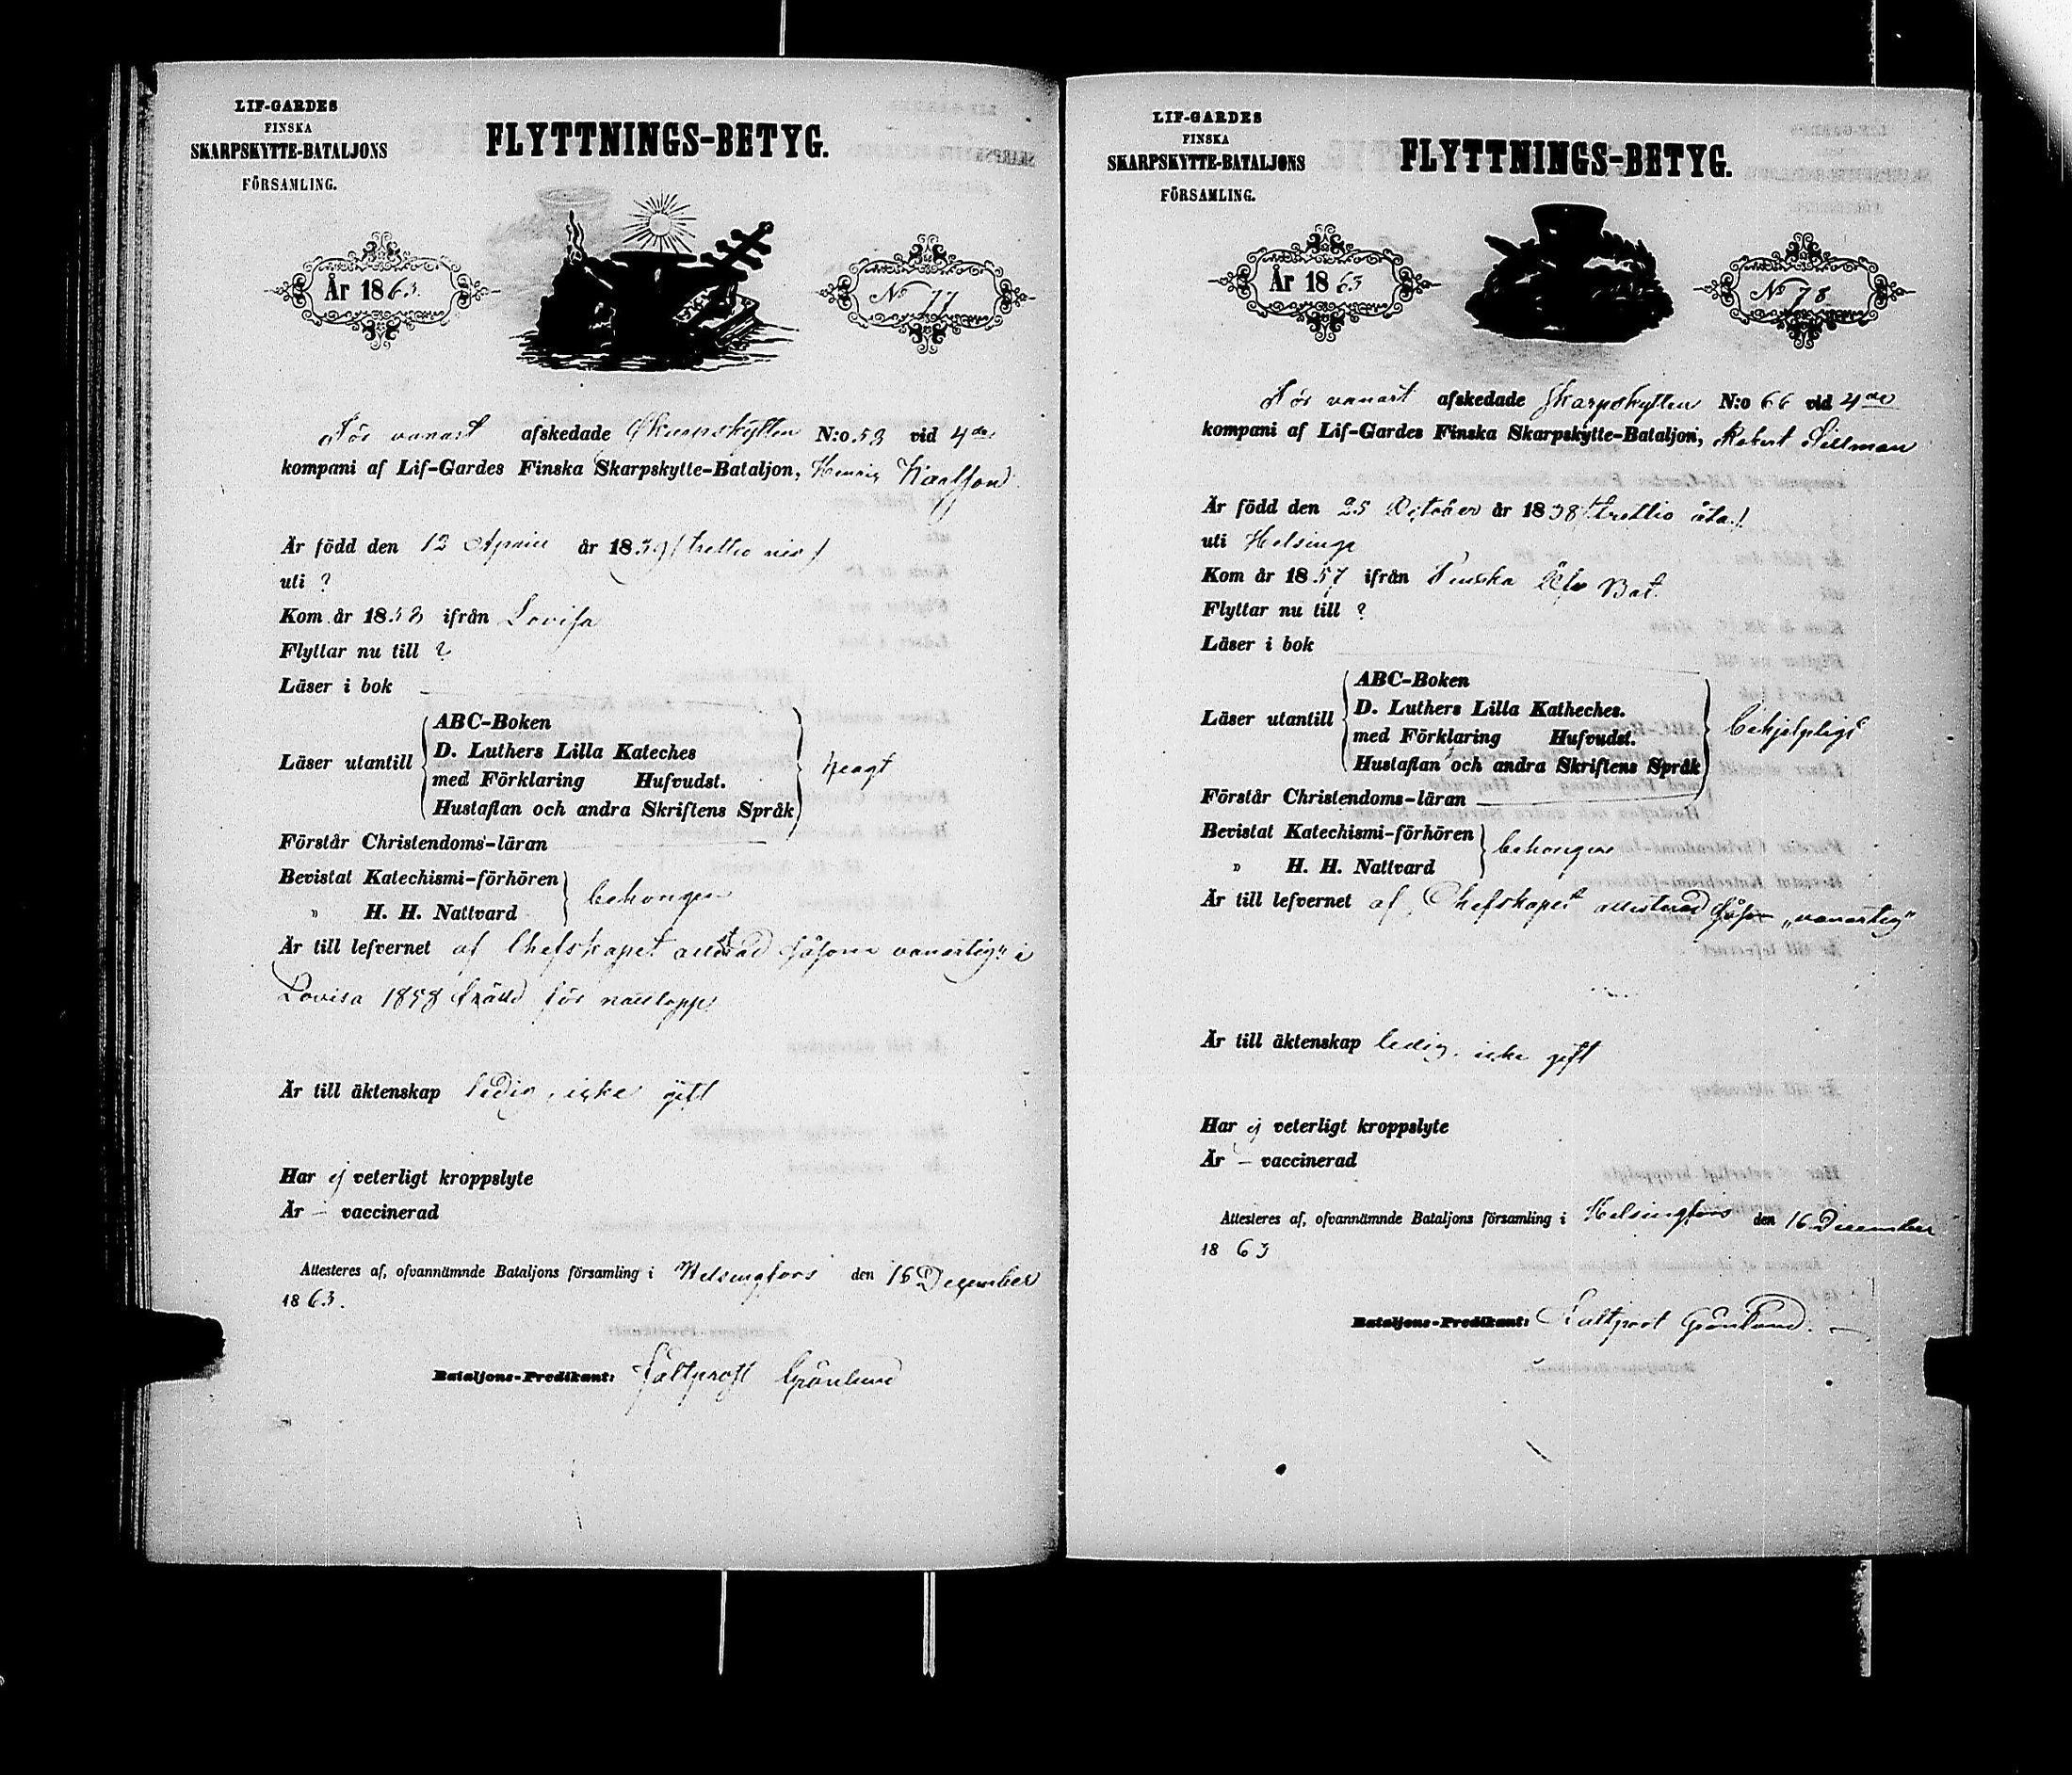 LIF-GARDES
FINSKA
SKARPSKYTTE-BATALJONS
FÖRSAMLING.
FLYTTNINGS-BETYG.
År 1863.
No 77
För vanart afskedade Skarpskytten N:o 58 vid 4de
kompani af Lif-Gardes Finska Skarpskytte-Bataljon, Henric Karlsson
Är född den 12 April år 1839 (trettio nio)
uti ?
Kom år 1858 ifrån Lovisa
Flyttar nu till ?
Läser i bok
Läser utantill
ABC-Boken
D. Luthers Lilla Kateches
med Förklaring Hufvudst.
Hustaflan och andra Skriftens Språk
svagt
Förstår Christendoms-läran
Bevistat Katechismi-förhören
" H. H. Nattvard
behörigen
Är till lefvernet af Chefskapet attesterad såsom vanartig" i
Lovisa 1858 för
Är till äktenskap ledig, icke gift
Har ej veterligt kroppslyte
Är – vaccinerad
Attesteres af, ofvannämnde Bataljons församling i Helsingfors den 16 December
1863.
Bataljons-Predikant: Fältprost Grönlund
LIF-GARDES
FINSKA
SKARPSKYTTE-BATALJONS
FÖRSAMLING.
FLYTTNINGS-BETYG.
År 1863
No 78
För vanart afskedade Skarpskytten N:o 66 vid 4de
kompani af Lif-Gardes Finska Skarpskytte-Bataljon, Robert Sillman
Är född den 25 October år 1838 (trettio åtta)
uti Helsinge
Kom år 1857 ifrån Finska Bat.
Flyttar nu till ?
Läser i bok
Läser utantill
ABC-Boken
D. Luthers Lilla Katheches.
med Förklaring Hufvudst.
Hustaflan och andra Skriftens Språk
behjelpligt
Förstår Christendoms-läran
Bevistat Katechismi-förhören
" H. H. Nattvard
behörigen
Är till lefvernet af Chefskapet attesterad såsom „vanartig"
Är till äktenskap ledig, icke gift
Har ej veterligt kroppslyte
Är – vaccinerad
Attesteres af, ofvannämnde Bataljons församling i Helsingfors den 16 December
1863
Bataljons-Predikant: Fältprost Grönlund.